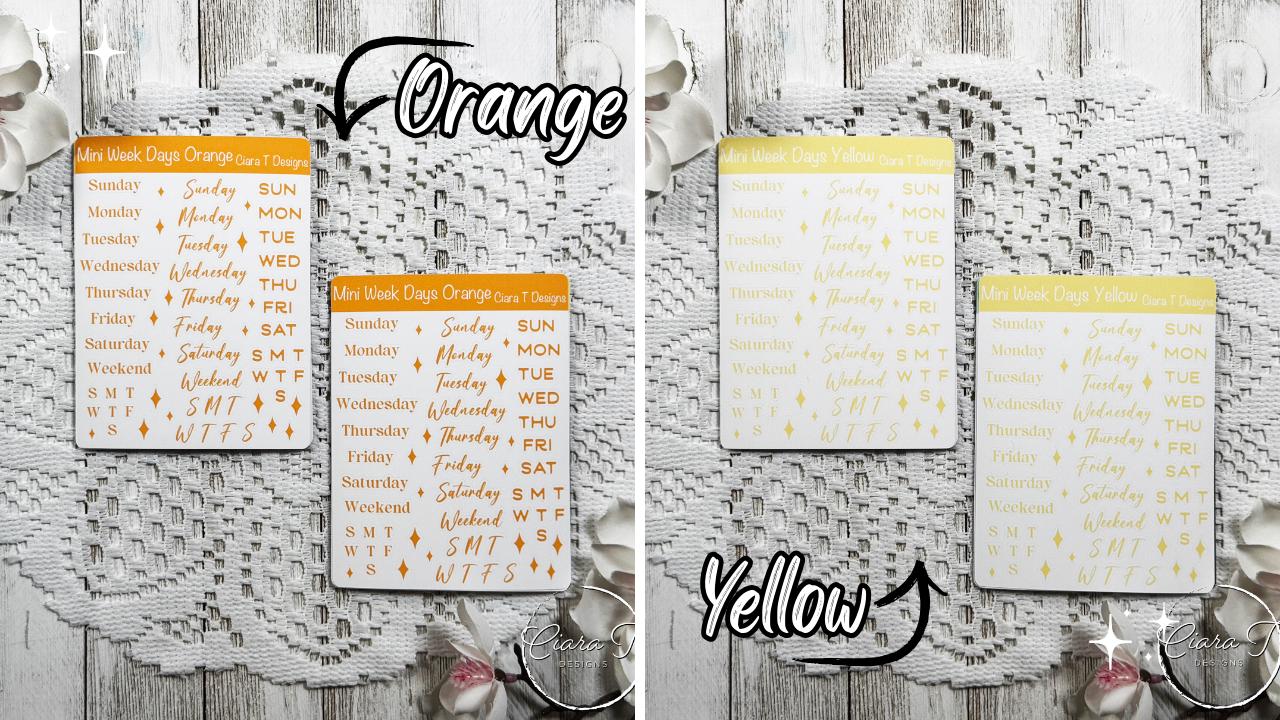 Orange
Mini Week Days Orange Ciara T Designs
Sunday Sunday SUN
Monday Monday MON
Tuesday Tuesday TUE
Wednesday Wednesday WED
Thursday Thursday THU
Friday Friday FRI
Saturday Saturday SAT
Weekend Weekend S M T
S M T S M T W T F
W T F W T F S S
S
Mini Week Days Orange Ciara T Designs
Sunday Sunday SUN
Monday Monday MON
Tuesday Tuesday TUE
Wednesday Wednesday WED
Thursday Thursday THU
Friday Friday FRI
Saturday Saturday SAT
Weekend Weekend S M T
S M T S M T W T F
W T F W T F S S
S
Ciara T
DESIGNS
Mini Week Days Yellow Ciara T Designs
Sunday Sunday SUN
Monday Monday MON
Tuesday Tuesday TUE
Wednesday Wednesday WED
Thursday Thursday THU
Friday Friday FRI
Saturday Saturday SAT
Weekend Weekend S M T
S M T S M T W T F
W T F W T F S S
S
Mini Week Days Yellow Ciara T Designs
Sunday Sunday SUN
Monday Monday MON
Tuesday Tuesday TUE
Wednesday Wednesday WED
Thursday Thursday THU
Friday Friday FRI
Saturday Saturday SAT
Weekend Weekend S M T
S M T S M T W T F
W T F W T F S S
S
Yellow
Ciara T
DESIGNS